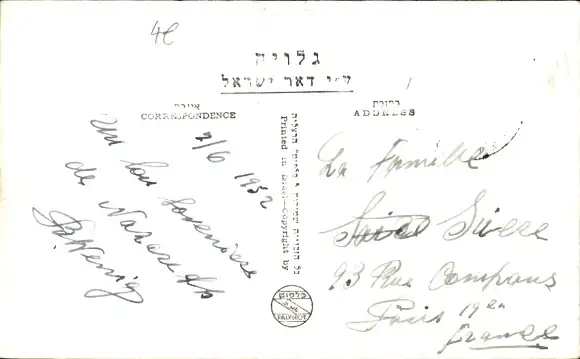 4€
גלויה
ע״י דאר ישראל
CORRESPONDENCE
ADDRESS
7/6 1952
Un bon souvenir
de Nazareth
Printed in Israel-Copyright by
PALPHOT
La Famille
Sivere
93 Rue Compans
Paris 19en
France